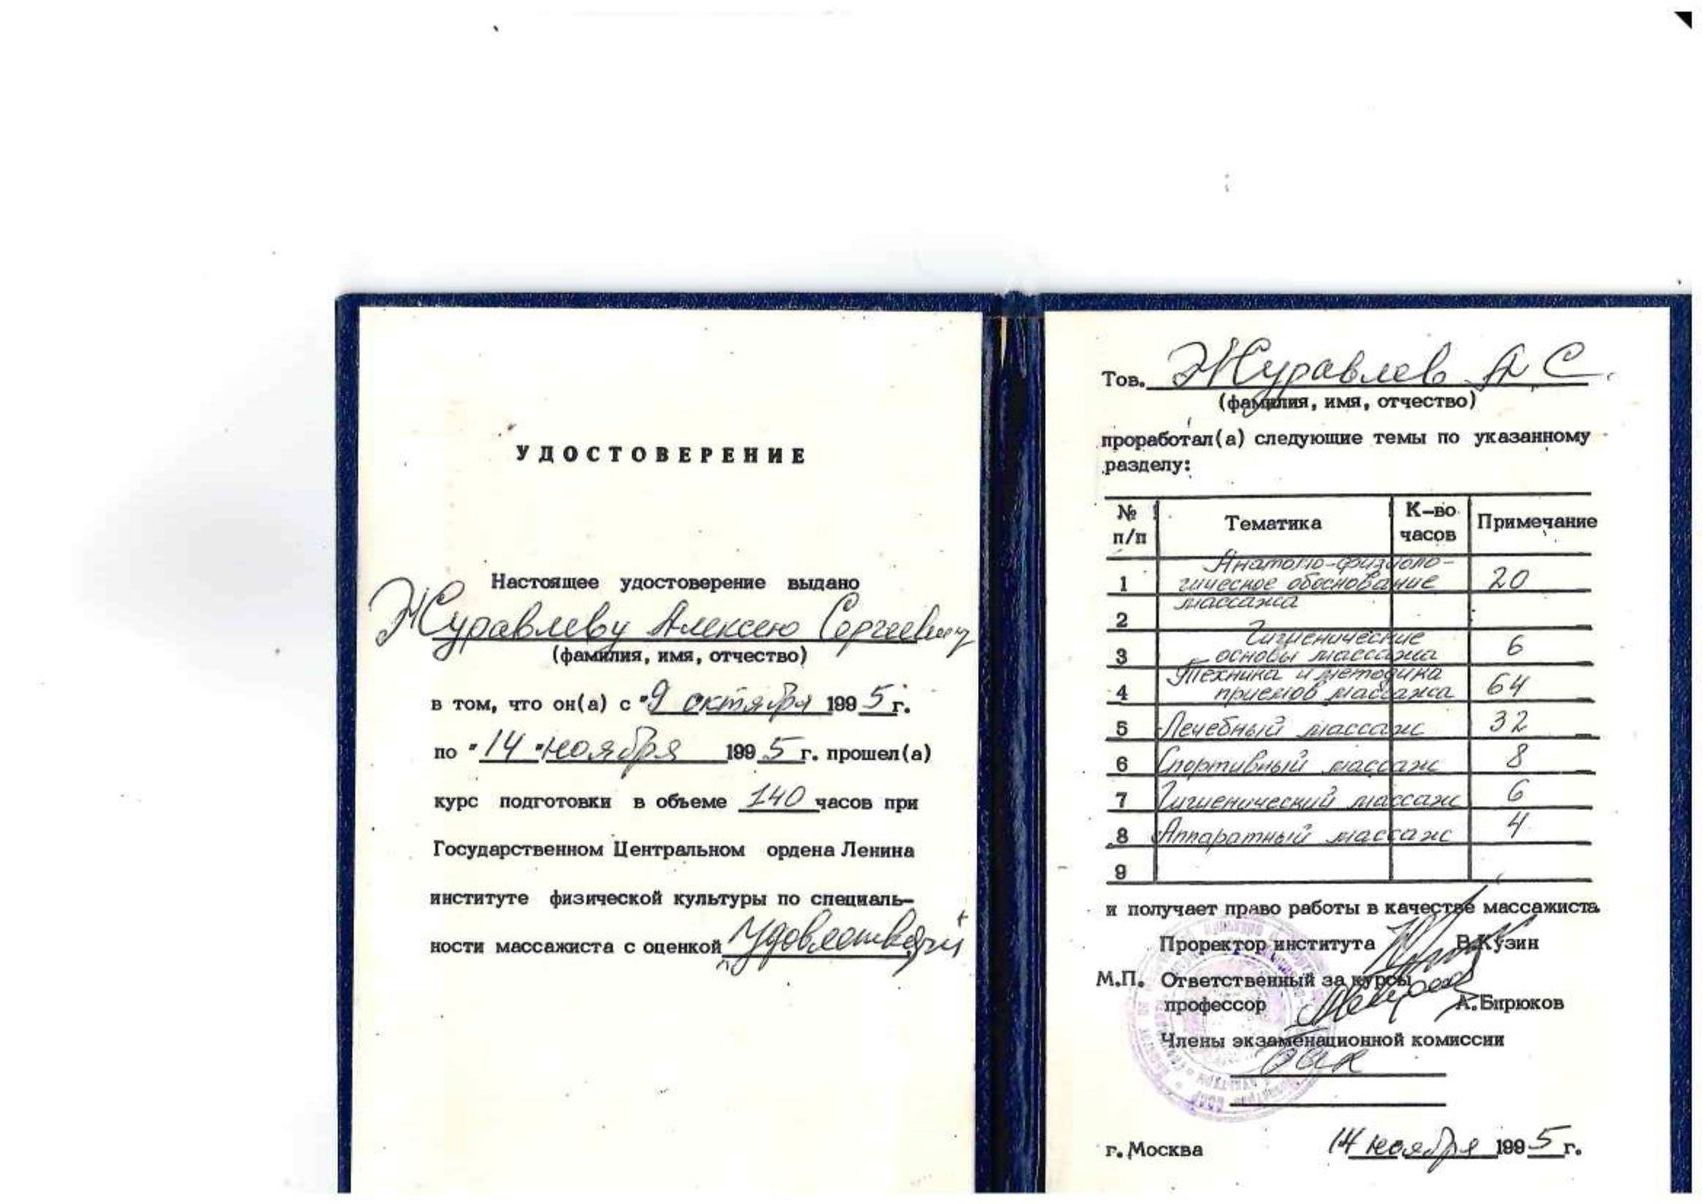 УДОСТОВЕРЕНИЕ
Настоящее удостоверение выдано
Журавлеву Алексею Сергеевичу
(фамилия, имя, отчество)
в том, что он(а) с "9 октября 1995 г.
по "14" ноября 1995 г. прошел(а)
курс подготовки в объеме 140 часов при
Государственном Центральном ордена Ленина
институте физической культуры по специаль-
ности массажиста с оценкой
Тов. Журавлев А С.
(фамилия, имя, отчество)
проработал(а) следующие темы по указанному
разделу:
№ п/п Тематика К-во часов Примечание
1 Анатомо-физиоло-
гическое обоснование 20
массажа
2
3 Гигиенические
основы массажа 6
4 Техника и методика
приемов массажа 64
5 Лечебный массаж 32
6 Спортивный массаж 8
7 Гигиенический массаж 6
8 Аппаратный массаж 4
9
и получает право работы в качестве массажиста
Проректор института В.Кузин
М.П. Ответственный за курсы
профессор А.Бирюков
Члены экзаменационной комиссии
г. Москва 14 ноября 1995 г.